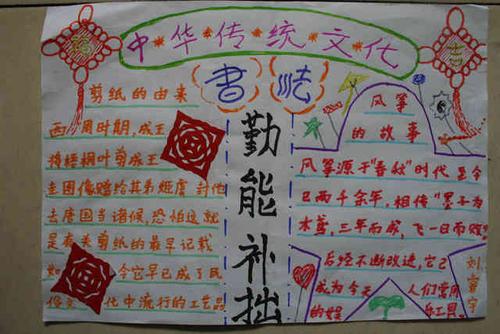 中华传统文化
吉
剪纸的由来
西周时期,成王
将梧桐叶剪成王
圭图像赠给其弟姬虞,封他
去唐国当诸侯,恐怕这就
是有关剪纸的最早记载
如 今它早已成了民
俗文 化中流行的工艺品
书法
勤能补拙
风筝
的故事
风筝源于"春秋"时代 至今
已两千余年,相传"墨子为
木鸢,三年而成,飞一日而败"
后经不断改进,它已
成为今天 人们常用
的娱 乐工具。